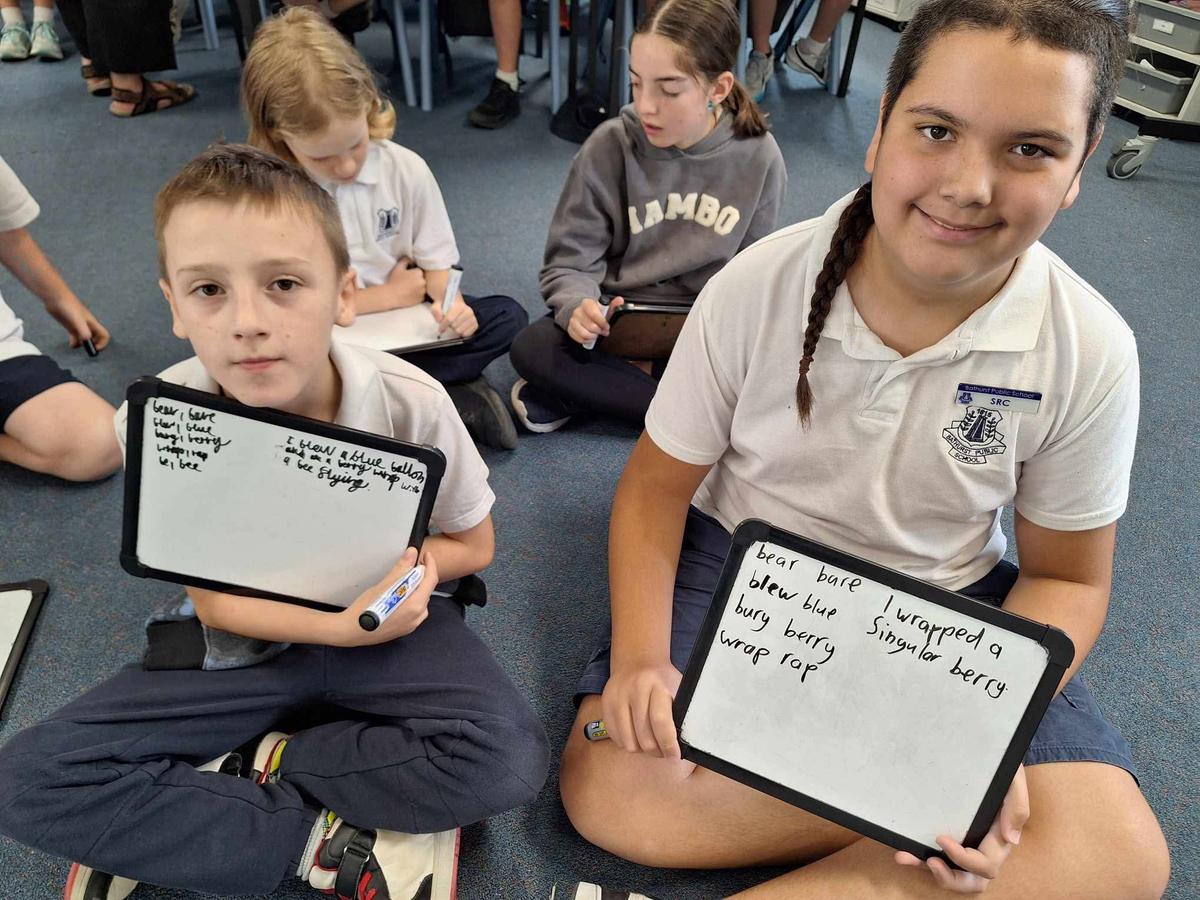 bear, bare
blew, blue
bury, berry
wrap, rap
be, bee
I blew a blue balloon
and a berry wrap with
a bee flying.
MAMBO
Bathurst Public School
SRC
BATHURST PUBLIC
SCHOOL
bear bare
blew blue
bury berry
wrap rap
I wrapped a
Singular berry.